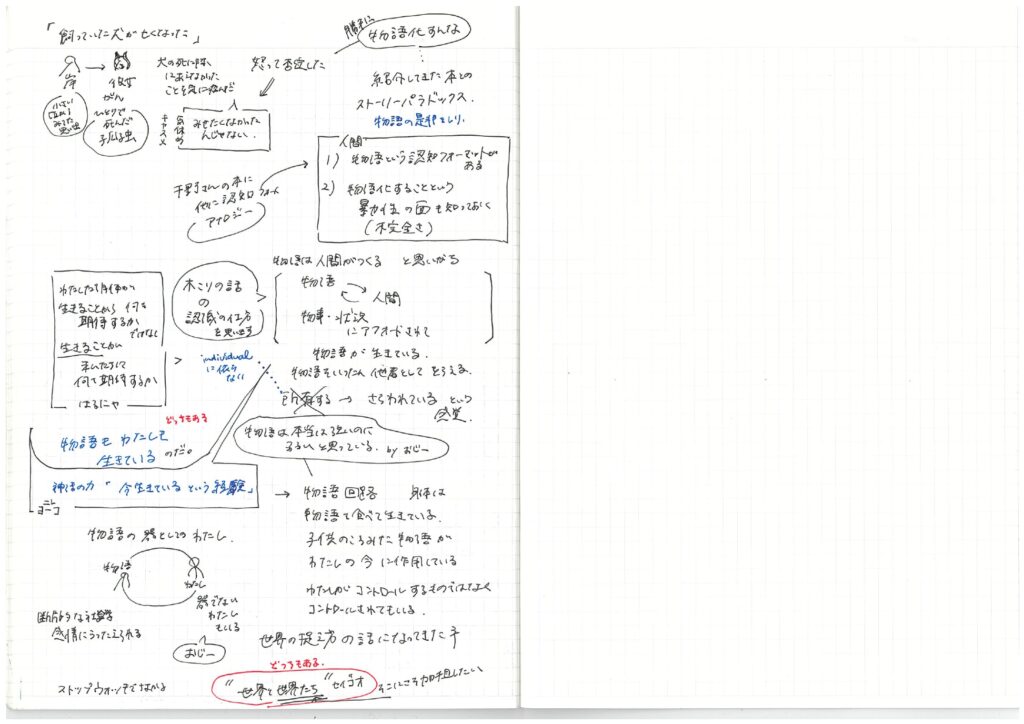 「飼っていた犬が亡くなった」
岸
彼女
がん
ひとりで
死んだ
犬の死に際
に会えなかった
ことを気に病んだ
怒って否定した
勝手に
物語化すんな
人
気休め
みせたくなかった
んじゃない.
紹介してきた本との
ストーリーパラドックス.
物語の是非をしり.
人間
1) 物語という認知フォーマットが
ある
2) 物語化することという
暴力性の面も知っておく
(不完全さ)
千野さんの本に
他に認知フォーマット
アナロジー
物語は人間がつくる と思いがち
物語
人間
物事・状況
にアフォードされて
木こりの話
の
認識の仕方
を思い出す
生きることから 何を
期待するか
ではなく
生きることが
何を期待するか
はるにゃ
individual
に依ら
ない
物語が生きている.
物語をいったん他者としてとらえる.
所有する → さらわれている という
感覚.
どっちもある
物語は本当は強いのに
弱いと思っている. by おじー
物語も わたしを
生きている のだ。
神話の力 「今生きているという経験」
→ 物語回路 身体は
物語を食べて生きている.
子供のころみた物語が
わたしの今に作用している
わたしがコントロールするものではなく
コントロールされてもいる.
物語の器としてのわたし.
物語
わたし
器でない
わたし
もいる
おじー
断片的な社会学
感情にうったえられる
世界の捉え方の話になってきた
どっちもある.
ストップウォッチではかる
"世界と世界たち" セイゴオ
そこにこそ加担したい